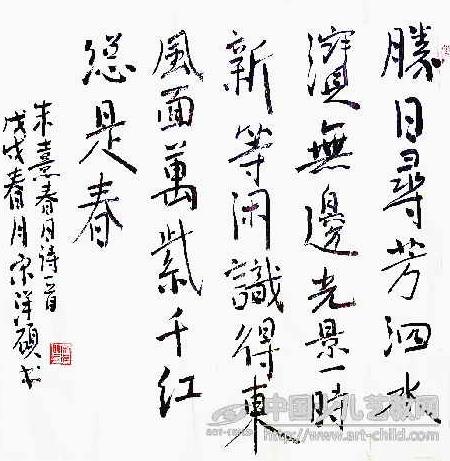 勝日尋芳泗水
濱無邊光景一時
新等闲識得東
風面萬紫千红
总是春
朱熹春日诗一首
戊戌春月宗洋硕书
中国少儿艺教网
www.art-child.com